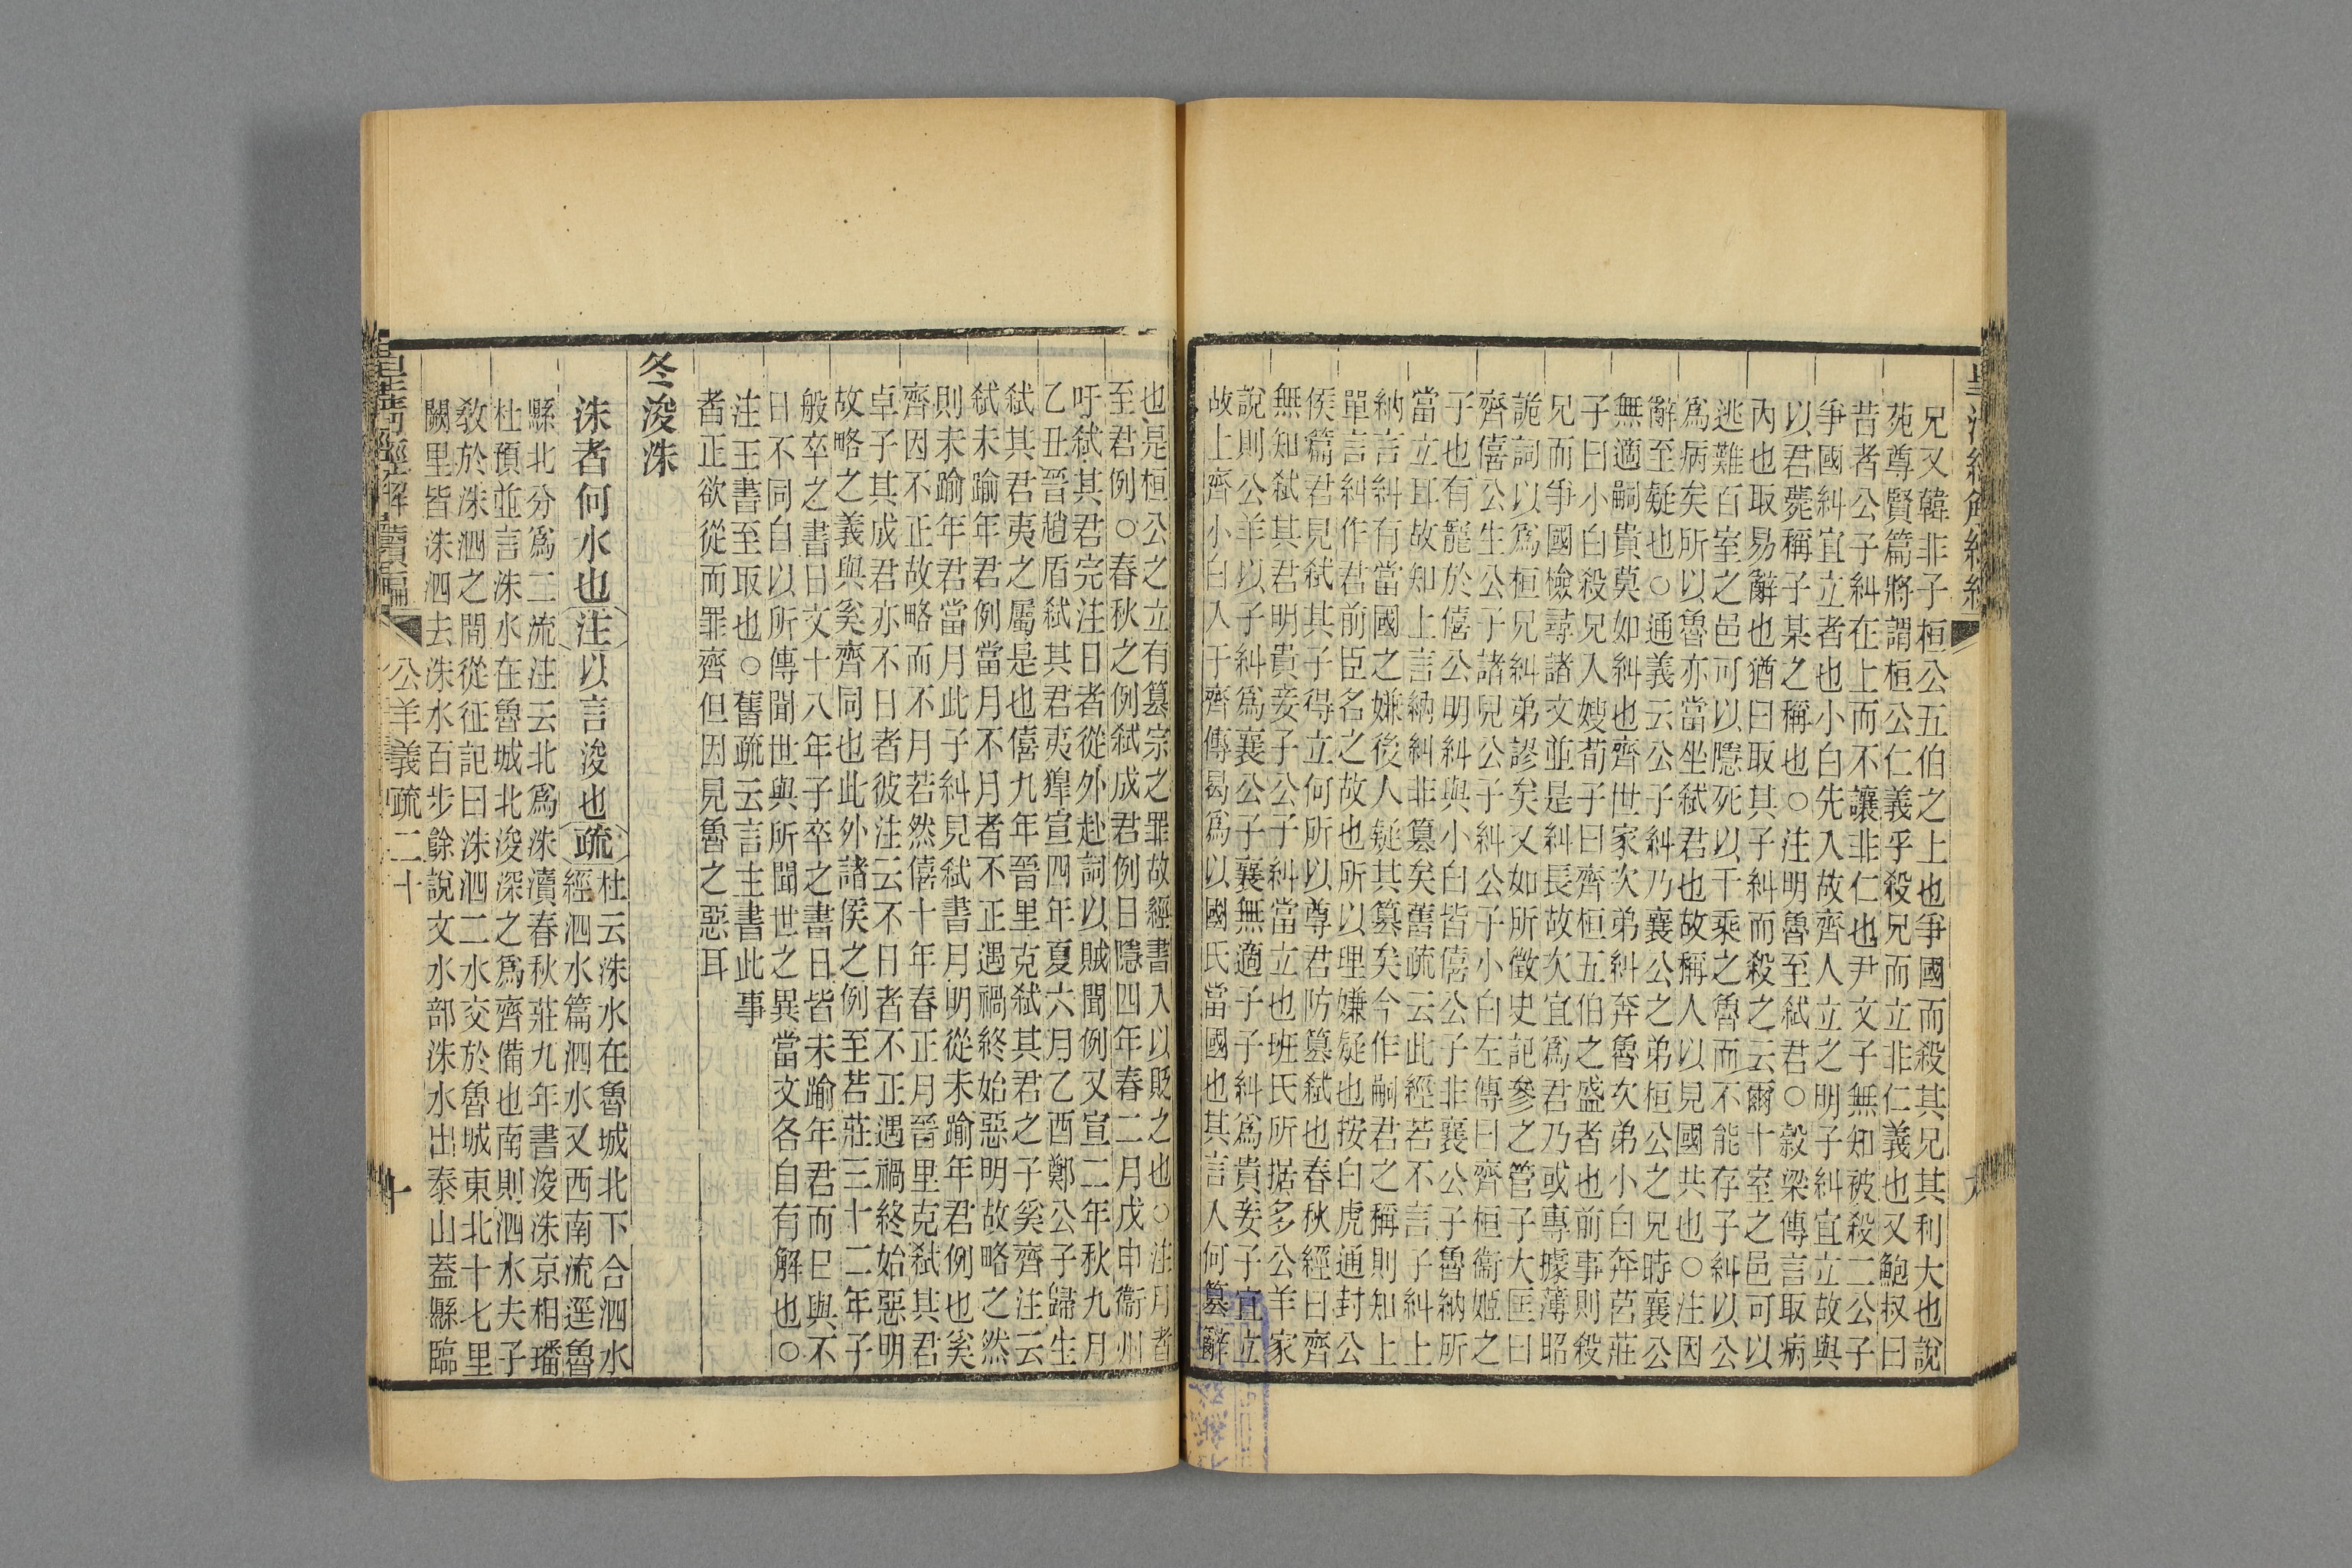 兄又韓非子桓公五伯之上也爭國而殺其兄其利大也說
苑尊賢篇將謂桓公仁義乎殺兄而立非仁義也又鮑叔曰
昔者公子糾在上而不讓非仁也尹文子無知被殺二公子
爭國糾宜立者也小白先入故齊人立之明子糾宜立故與
以君薨稱子某之稱也○注明魯至弒君○穀梁傳言取病
內也取易辭也猶曰取其子糾而殺之云爾十室之邑可以
逃難百室之邑可以隱死以千乘之魯而不能存子糾以公
爲病矣所以魯亦當坐弒君也故稱人以見國共也○注因
辭至疑也○通義云公子糾乃襄公之弟桓公之兄時襄公
無適嗣貴莫如糾也齊世家次弟糾奔魯次弟小白奔莒莊
子曰小白殺兄入嫂荀子曰齊桓五伯之盛者也前事則殺
兄而爭國檢尋諸文並是糾長故次宜爲君乃或專據薄昭
詭詞以爲桓兄糾弟謬矣又如所徵史記參之管子大匡曰
齊僖公生公子諸兒公子糾公子小白左傳曰齊桓衞姬之
子也有寵於僖公明糾與小白皆僖公子非襄公子魯納所
當立耳故知上言納糾非篡矣舊疏云此經若不言子糾上
納言糾有當國之嫌後人疑其篡矣今作嗣君之稱則知上
單言糾作君前臣名之故也所以理嫌疑也按白虎通封公
侯篇君見弒其子得立何所以尊君防篡弒也春秋經曰齊
無知弒其君明貴妾子公子糾當立也班氏所据多公羊家
說則公羊以子糾爲襄公子襄無適子子糾爲貴妾子宜立
故上齊小白入于齊傳曷爲以國氏當國也其言入何篡辭
也是桓公之立有篡宗之罪故經書入以貶之也○注月者
至君例○春秋之例弒成君例日隱四年春二月戊申衞州
吁弒其君完注日者從外赴詞以賊聞例又宣二年秋九月
乙丑晉趙盾弒其君夷獋宣四年夏六月乙酉鄭公子歸生
弒其君夷之屬是也僖九年晉里克弒其君之子奚齊注云
弒未踰年君例當月不月者不正遇禍終始惡明故略之然
則未踰年君當月此子糾見弒書月明從未踰年君例也奚
齊因不正故略而不月若然僖十年春正月晉里克弒其君
卓子其成君亦不日者彼注云不日者不正遇禍終始惡明
故略之義與奚齊同也此外諸侯之例至若莊三十二年子
般卒之書日文十八年子卒之書日皆未踰年君而日與不
日不同自以所傳聞世與所聞世之異當文各自有解也○
注王書至取也○舊疏云言主書此事
者正欲從而罪齊但因見魯之惡耳
冬浚洙
洙者何水也注以言浚也疏杜云洙水在魯城北下合泗水
經泗水篇泗水又西南流逕魯
縣北分爲二流注云北爲洙瀆春秋莊九年書浚洙京相璠
杜預並言洙水在魯城北浚深之爲齊備也南則泗水夫子
敎於洙泗之間從征記曰洙泗二水交於魯城東北十七里
闕里皆洙泗去洙水百步餘說文水部洙水出泰山蓋縣臨
皇淸經解續編
公羊義疏二十
十